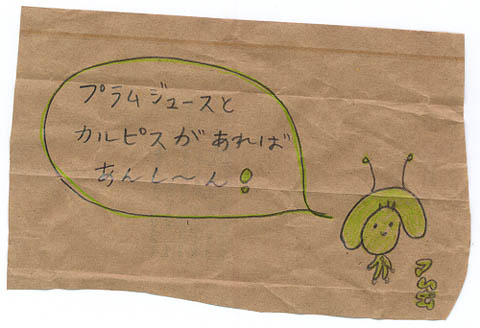 プラムジュースと
カルピスがあれば
あんし〜ん!